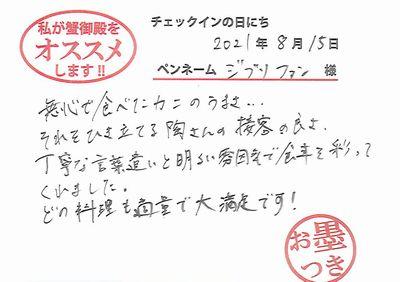 私が蟹御殿を
オススメ
します!!
チェックインの日にち
2021年8月15日
ペンネーム ジブリファン 様
無心で食べたカニのうまさ…
それをひき立てる陶さんの接客の良さ。
丁寧な言葉遣いと明るい雰囲気で食事を彩って
くれました。
どの料理も適量で大満足です!
お墨
つき